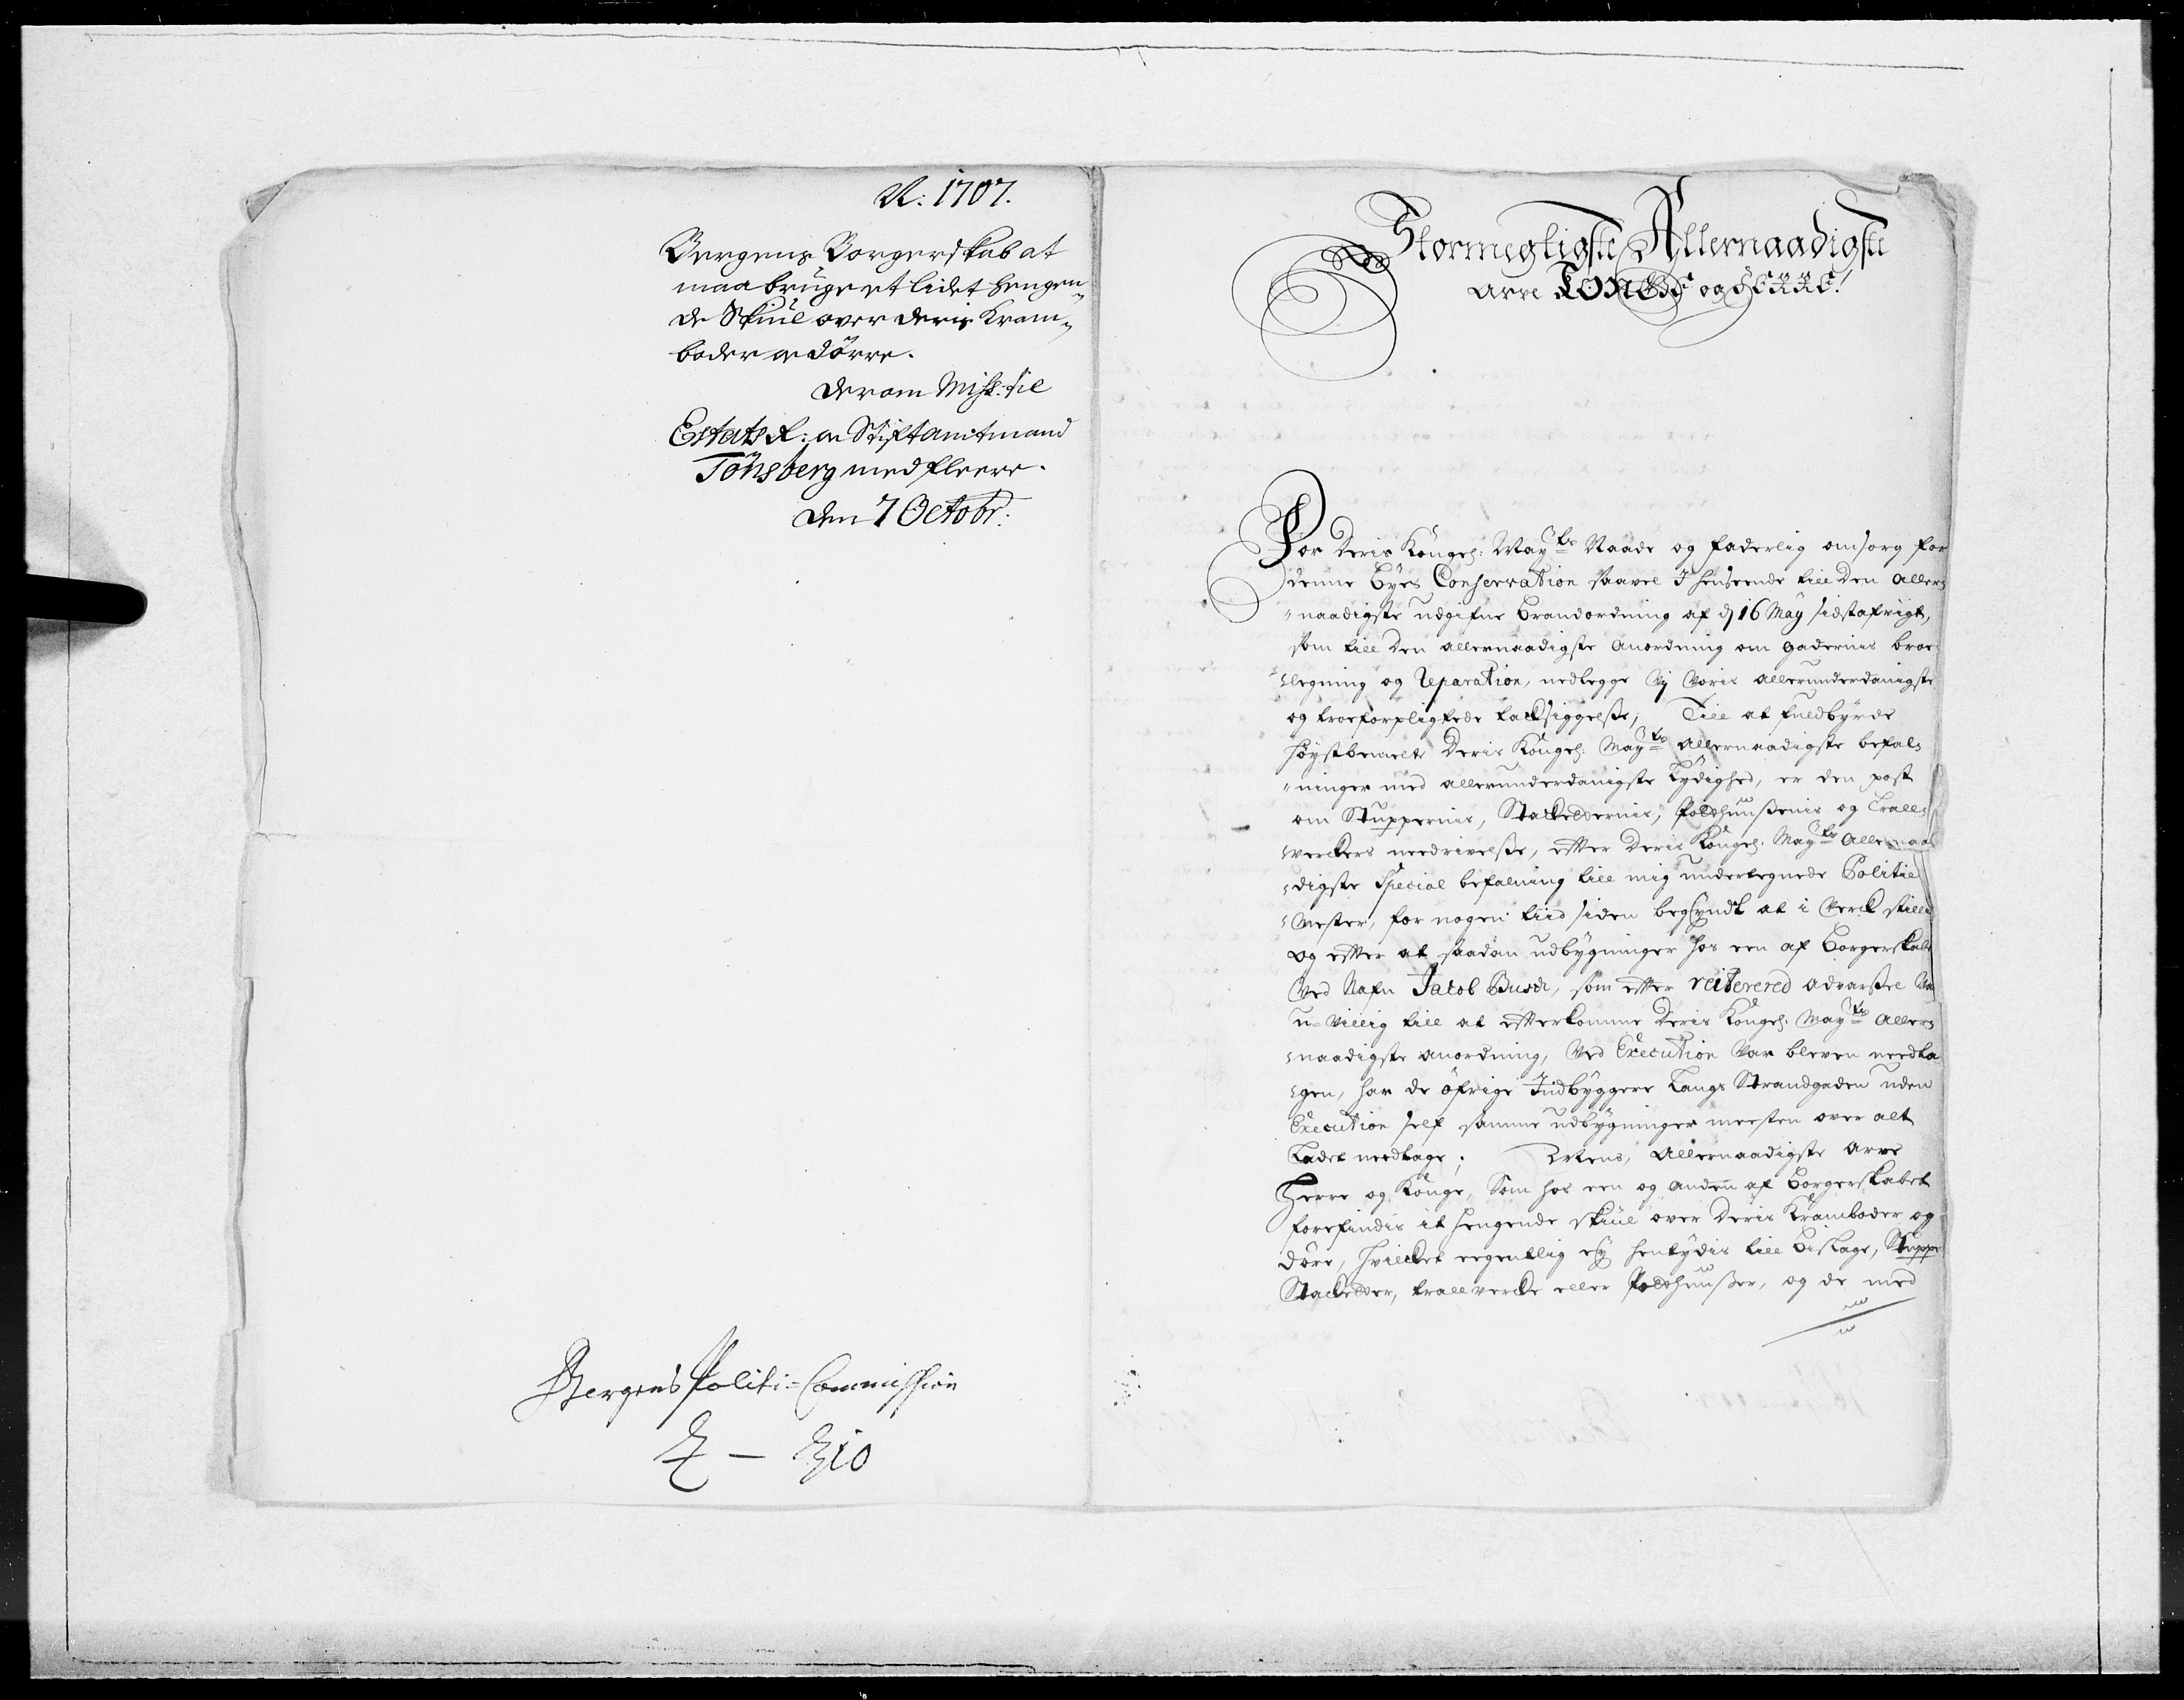 A: 1707.
Bergens Borgerskab at
maa bruge et lidet hengen„
de Skiul over deris Kram„
boder og dörre.
derom Miss: til
Estats R: og Stiftamtmand
Tönsberg med fleere.
den 7 Octobr:
Bergens Politi-Commission
Stormegtigste Allernaadigste
Arve KONGE og HERRE!
For Deris Kongel: Mayts Naade og faderlig omsorg for
denne Byes Conservation saavel I henseende till Den Aller„
„naadigste udgifne Brandordning af d 16 May sidstafvigt,
som till Den allernaadigste Anordning om gadernis broe„
„legning og Reparation, nedlegge Vj Voris allerunderdanigste
og troeforpligtede tacksiggelsse, Till at fuldbyrde
höystbemelte Deris Kongel: Mayts Allernaadigste befal„
„ninger med allerunderdanigste Lydighed, er den post
om Stuppernis, Stacketternis, Poldhuussenis og Trall„
„verckers needrivelsse, efter Deris Kongel: Mayts Allernaa„
„digste Special befalning till mig undertegnede Politie
„Mester, for nogen tiid siden begyndt at i Verck stille
og efter at saadan udbygninger hos een af Borgerskabet
Ved Nafn Jacob Busch, som efter reiterered advarsel Va
u-Villig till at efterkomme Deris Kongel: Mayts Aller„
„naadigste anordning, Ved Execution Var bleven needta„
„gen, har de öfrige Indbyggere Langs Strandgaden uden
Execution self samme udbygninger meesten over alt
Ladet needtage; Mens, Allernaadigste Arve
Herre og Konge, Som hos een og anden af Borgerskabet
forefindis it hengende skiul over Deris Kramboder og
döre, hvilcket eegentlig ey hentydis till Bislage, Stuppe
Stacketter, trallvercke eller Poldhuusser, og de med